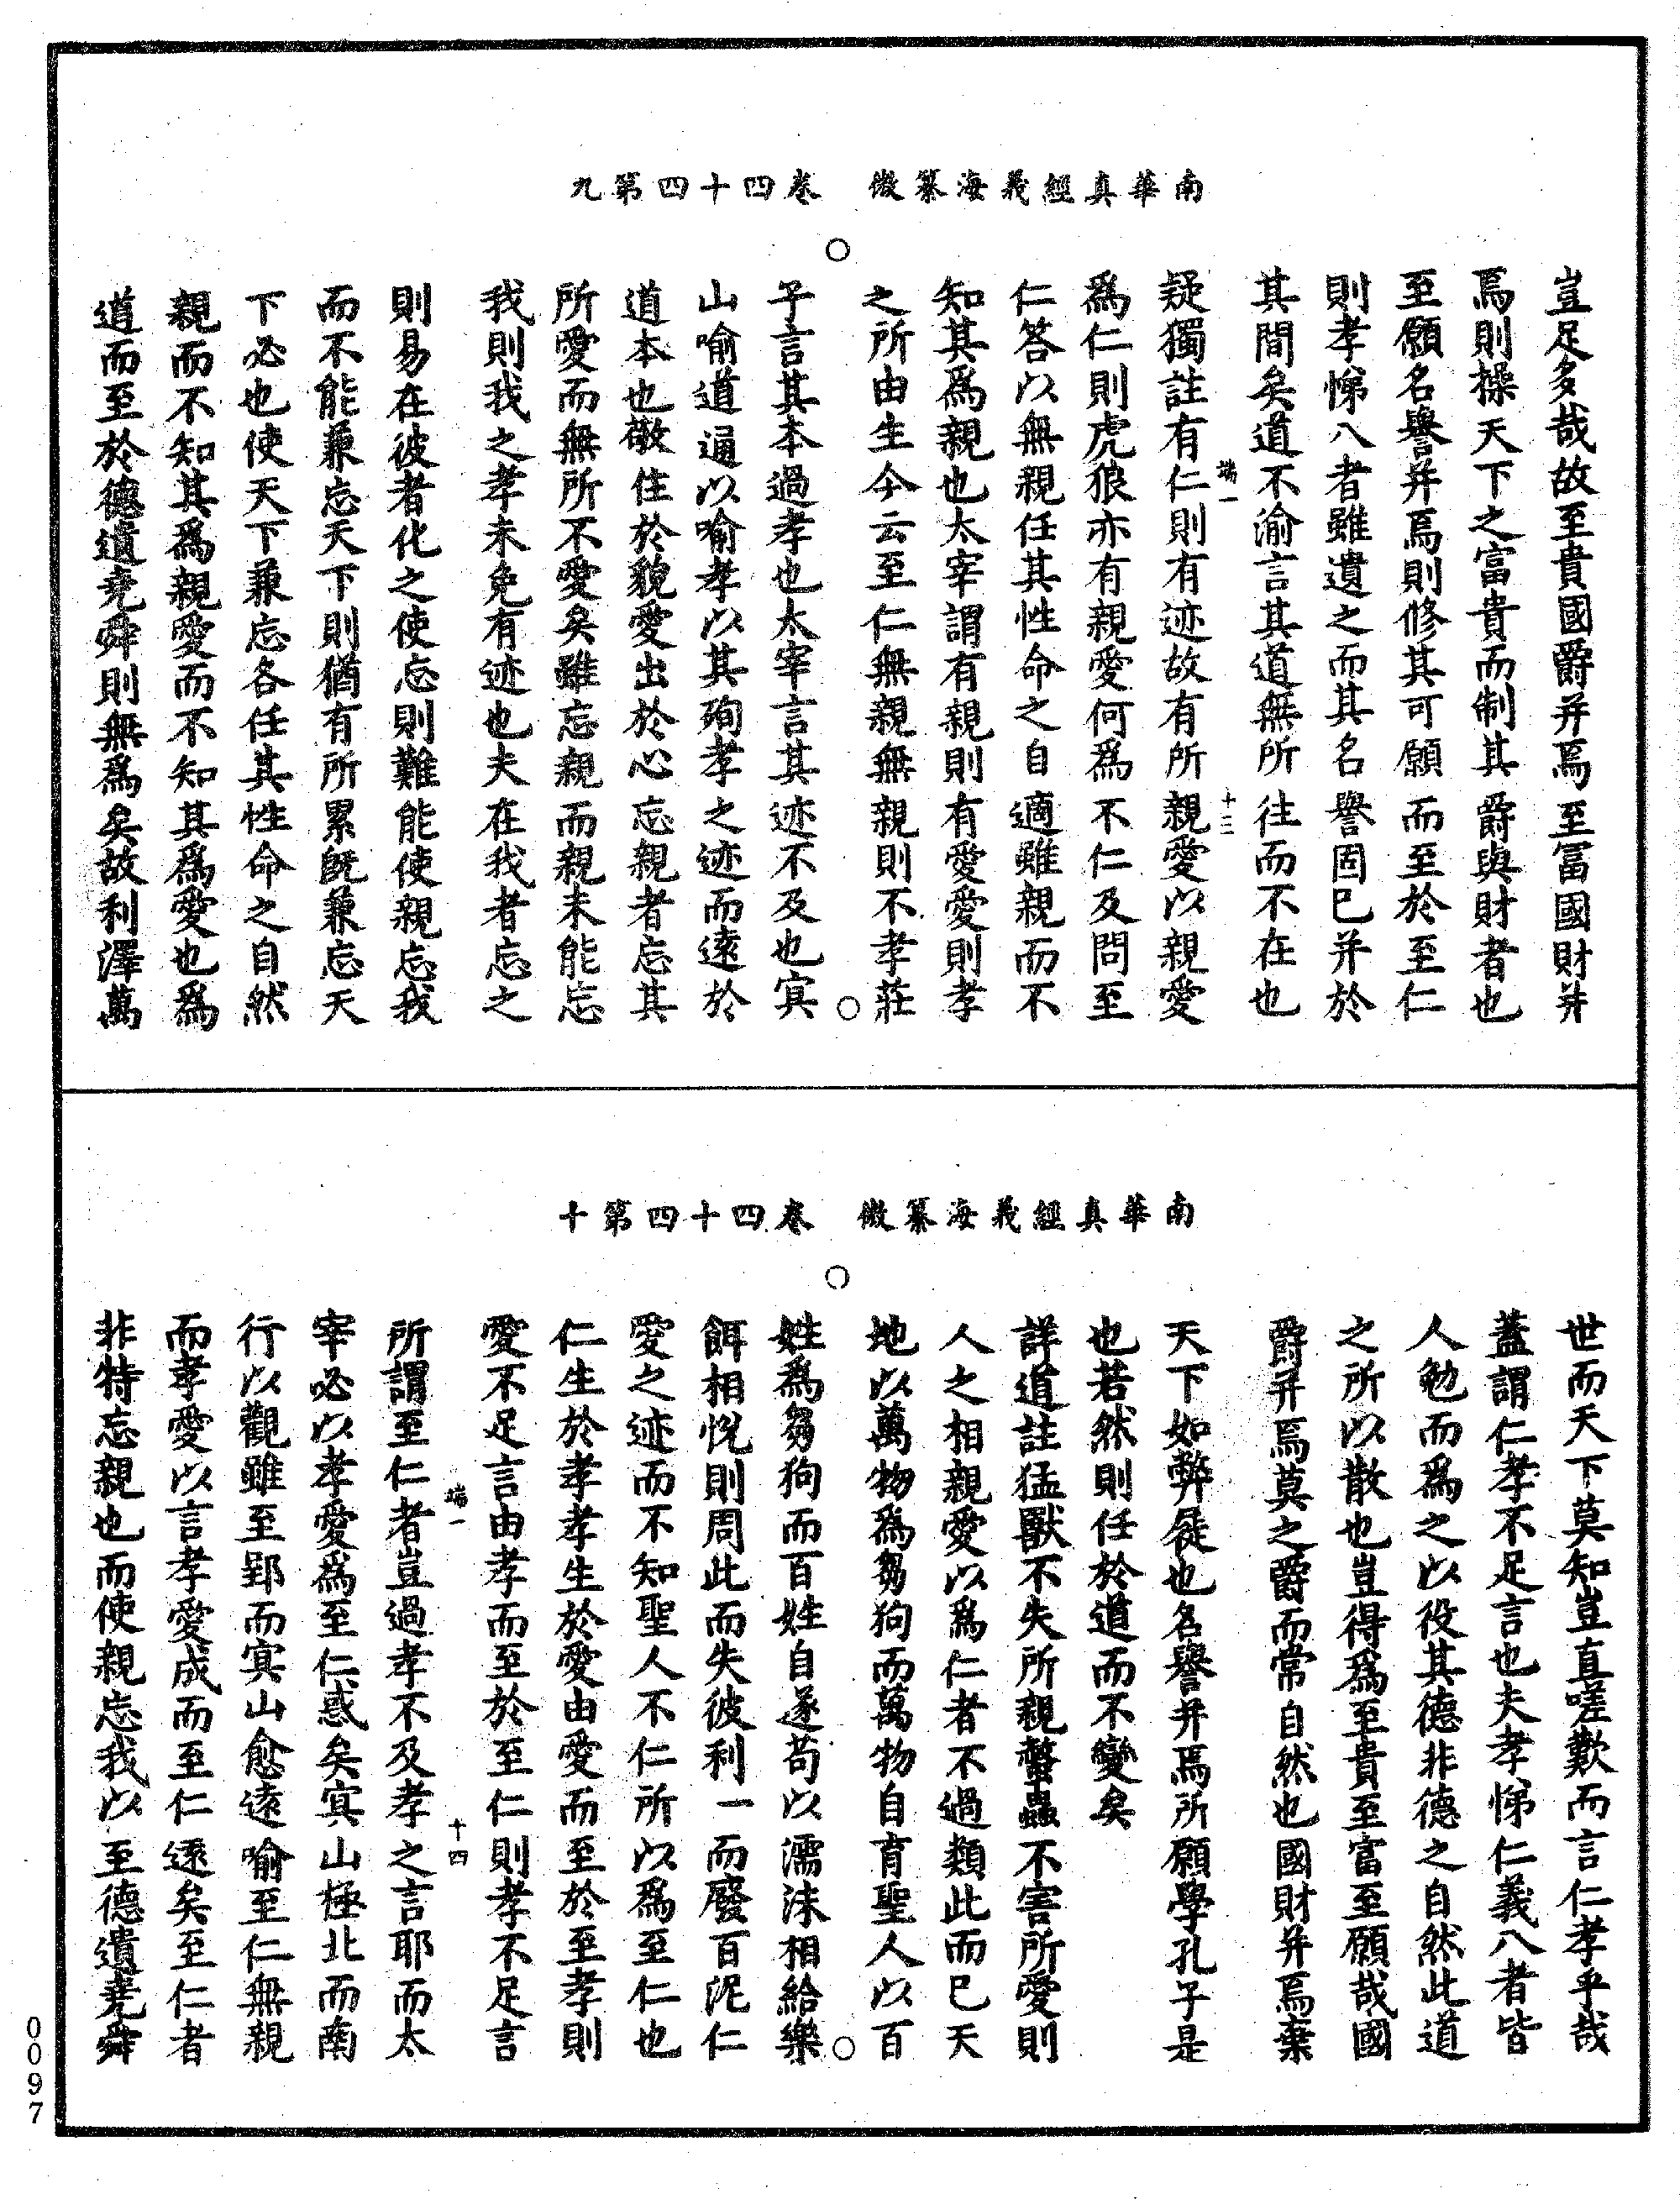 南華真經義海纂微　卷四十四第九
豈足多哉故至貴國爵并焉至冨國財并
焉則操天下之富貴而制其爵與財者也
至願名譽并焉則修其可願而至於至仁
則孝悌八者雖遺之而其名譽固已并於
其間矣道不渝言其道無所往而不在也
疑獨註有仁則有迹故有所親愛以親愛
端一
十三
爲仁則虎狼亦有親愛何爲不仁及問至
仁答以無親任其性命之自適雖親而不
知其爲親也太宰謂有親則有愛愛則孝
之所由生今云至仁無親無親則不孝莊
子言其本過孝也太宰言其迹不及也㝠
山喻道通以喻孝以其殉孝之迹而遠於
道本也敬住於貌愛出於心忘親者忘其
所愛而無所不愛矣雖忘親而親未能忘
我則我之孝未免有迹也夫在我者忘之
則易在彼者化之使忘則難能使親忘我
而不能兼忘天下則猶有所累旣兼忘天
下必也使天下兼忘各任其性命之自然
親而不知其爲親愛而不知其爲愛也爲
道而至於德遺堯舜則無爲矣故利澤萬
南華真經義海纂微　卷四十四第十
世而天下莫知豈直嗟歎而言仁孝乎哉
蓋謂仁孝不足言也夫孝悌仁義八者皆
人勉而爲之以役其德非德之自然此道
之所以散也豈得爲至貴至富至願哉國
爵并焉莫之爵而常自然也國財并焉棄
天下如弊屣也名譽并焉所願學孔子是
也若然則任於道而不變矣
詳道註猛獸不失所親螫蟲不害所愛則
人之相親愛以爲仁者不過類此而已天
地以萬物爲芻狗而萬物自育聖人以百
姓爲芻狗而百姓自遂苟以濡沫相給樂
餌相悅則周此而失彼利一而廢百泥仁
愛之迹而不知聖人不仁所以爲至仁也
仁生於孝孝生於愛由愛而至於至孝則
愛不足言由孝而至於至仁則孝不足言
端一
十四
所謂至仁者豈過孝不及孝之言耶而太
宰必以孝愛爲至仁惑矣㝠山極北而南
行以觀雖至郢而㝠山愈遠喻至仁無親
而孝愛以言孝愛成而至仁逺矣至仁者
非特忘親也而使親忘我以至德遺堯舜
0097